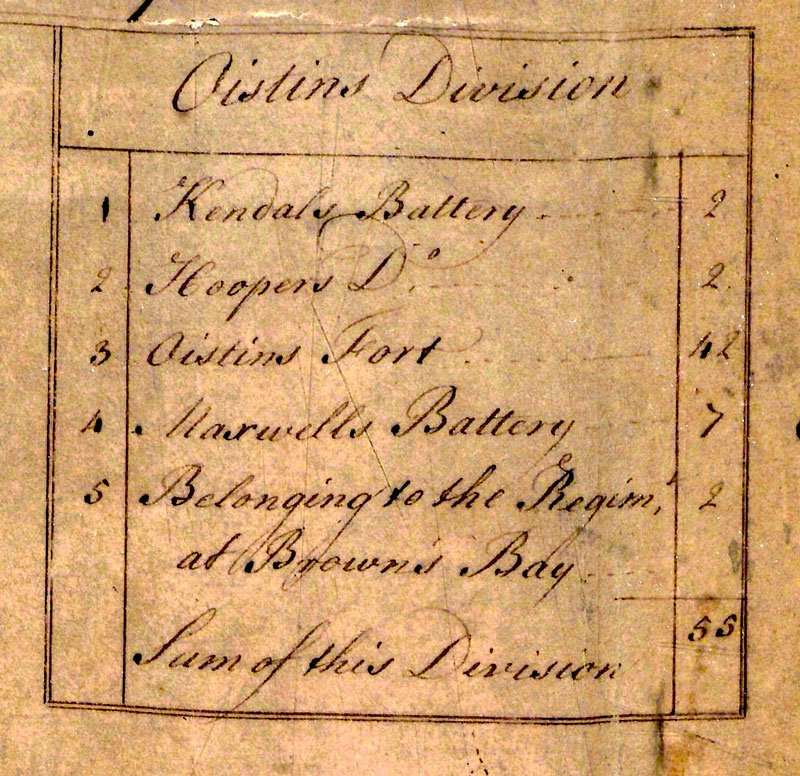 Oistins Division
1 Kendals Battery 2
2 Hoopers Do. 2
3 Oistins Fort 42
4 Maxwells Battery 7
5 Belonging to the Regimt. 2
at Browns Bay
55
Sum of this Division